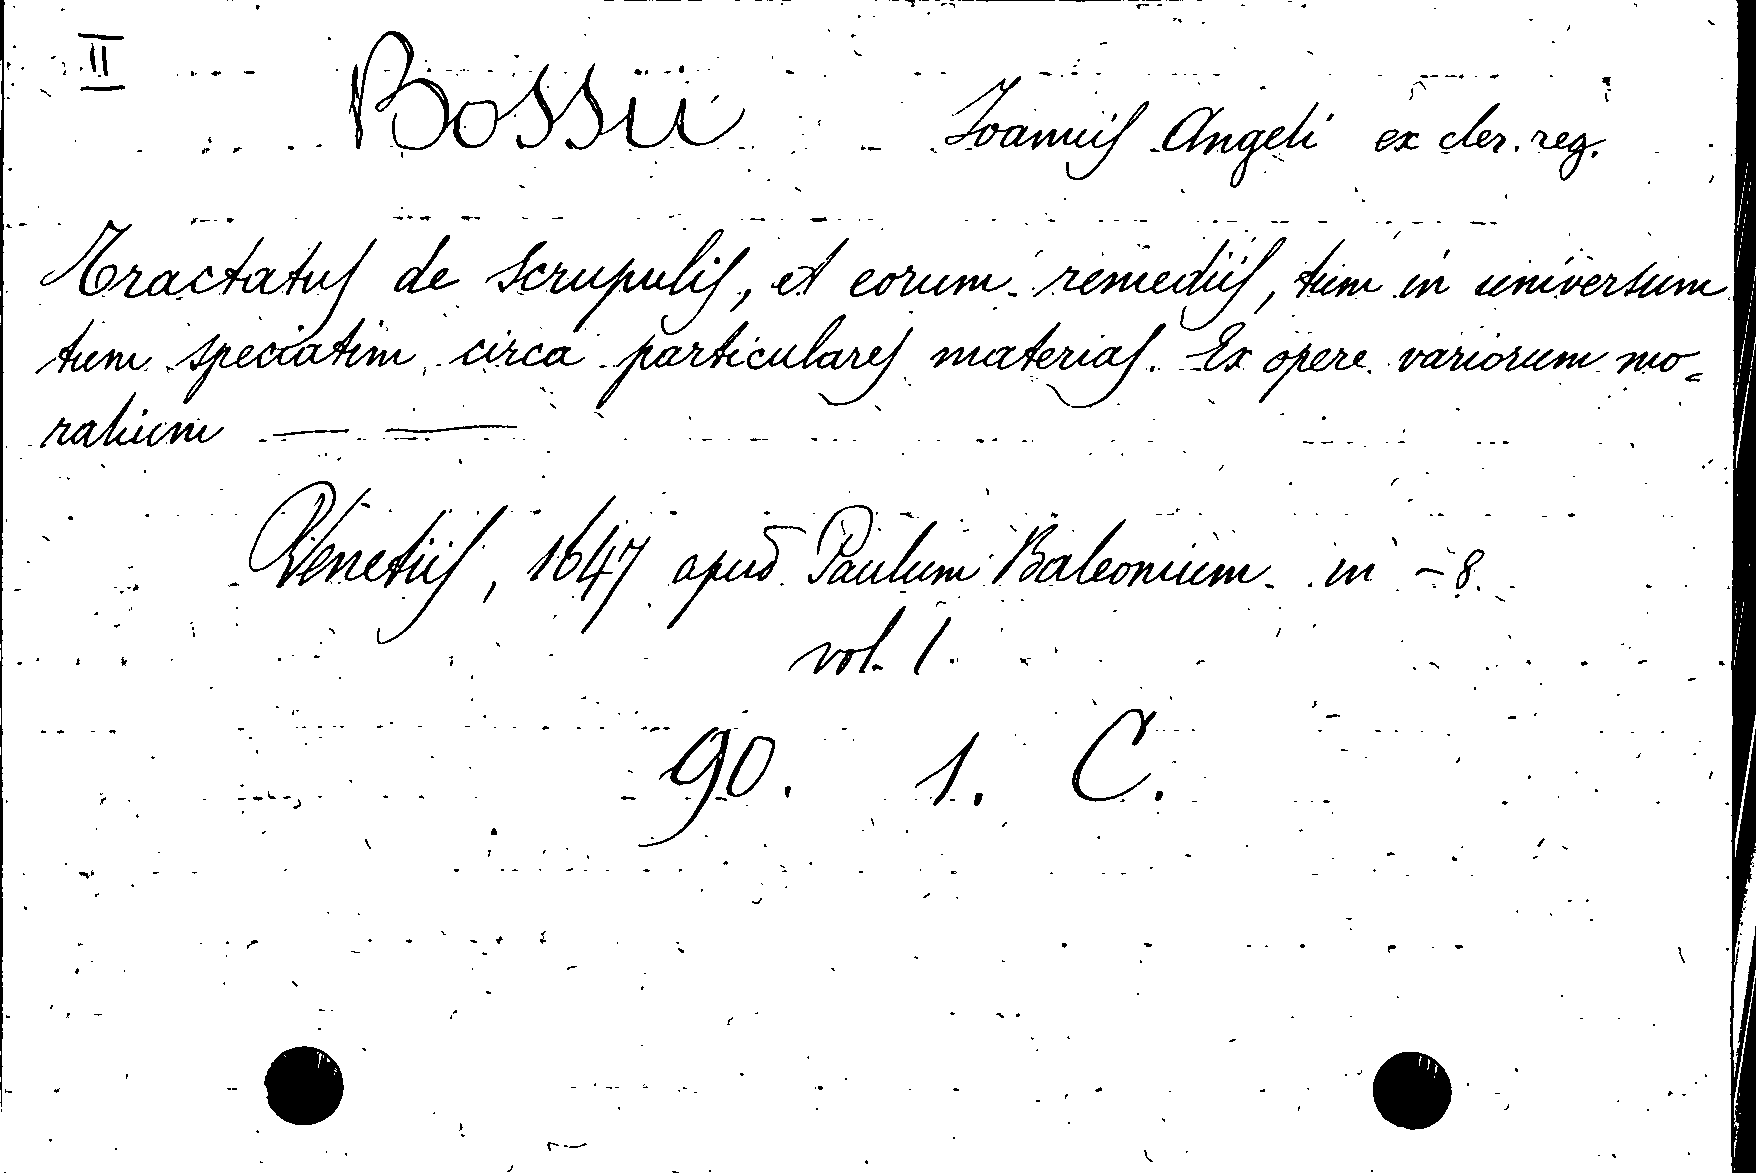 II
Bossii Ioannis Angeli ex cler. reg.
Tractatus de scrupulis, et eorum remediis, tum in universum
tum speciatim circa particulares materias. Ex opere variorum mo=
ralium
Venetiis, 1647 apud Paulum Baleonium in -8.
vol. 1.
90. 1. C.